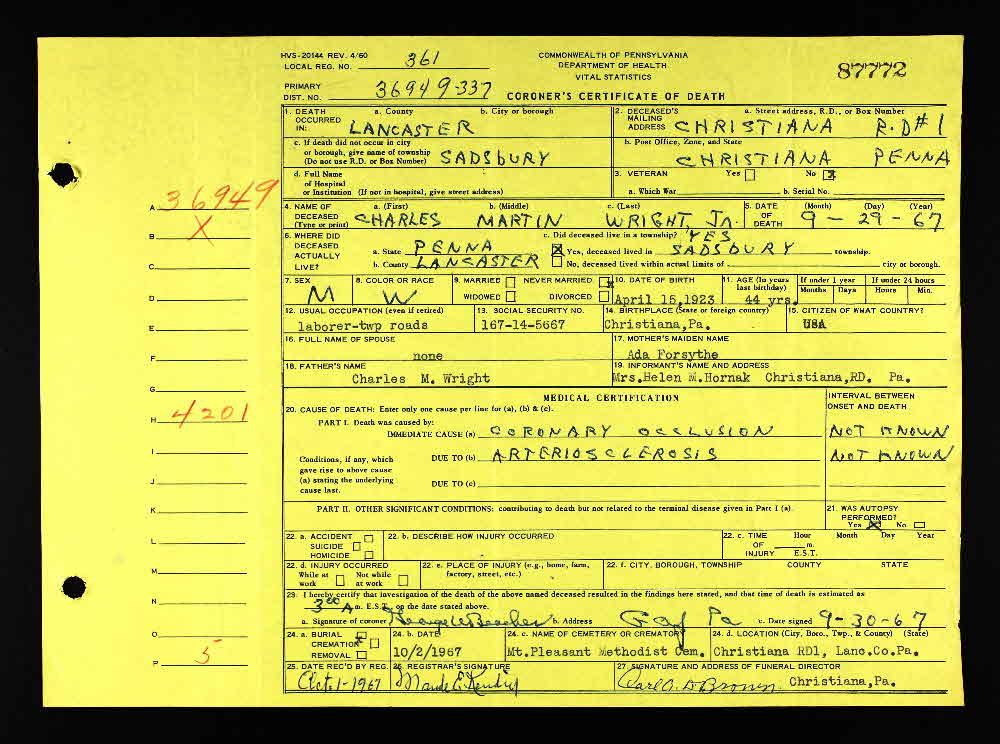 HVS-20144 REV. 4/60
LOCAL REG. NO. 361
COMMONWEALTH OF PENNSYLVANIA
DEPARTMENT OF HEALTH
VITAL STATISTICS
87772
PRIMARY
DIST. NO. 36949-337
CORONER'S CERTIFICATE OF DEATH
1. DEATH OCCURRED IN: a. County b. City or borough
LANCASTER
2. DECEASED'S MAILING ADDRESS a. Street address, R.D., or Box Number
CHRISTIANA R.D#1
c. If death did not occur in city or borough, give name of township (Do not use R.D. or Box Number) SADSBURY
b. Post Office, Zone, and State
CHRISTIANA PENNA
d. Full Name of Hospital or Institution (If not in hospital, give street address)
3. VETERAN Yes No X
a. Which War b. Serial No.
4. NAME OF DECEASED (Type or print) a. (First) b. (Middle) c. (Last)
CHARLES MARTIN WRIGHT JR.
5. DATE OF DEATH (Month) (Day) (Year)
9-29-67
6. WHERE DID DECEASED ACTUALLY LIVE?
a. State PENNA
b. County LANCASTER
c. Did deceased live in a township? YES
X Yes, deceased lived in SADSBURY township.
No, deceased lived within actual limits of city or borough.
7. SEX
M
8. COLOR OR RACE
W
9. MARRIED NEVER MARRIED X
WIDOWED DIVORCED
10. DATE OF BIRTH
April 15,1923
11. AGE (In years last birthday)
44 yrs.
If under 1 year If under 24 hours
Months Days Hours Min.
12. USUAL OCCUPATION (even if retired)
laborer-twp roads
13. SOCIAL SECURITY NO.
167-14-5667
14. BIRTHPLACE (State or foreign country)
Christiana,Pa.
15. CITIZEN OF WHAT COUNTRY?
USA
16. FULL NAME OF SPOUSE
none
17. MOTHER'S MAIDEN NAME
Ada Forsythe
18. FATHER'S NAME
Charles M. Wright
19. INFORMANT'S NAME AND ADDRESS
Mrs.Helen M.Hornak Christiana,RD. Pa.
MEDICAL CERTIFICATION
INTERVAL BETWEEN ONSET AND DEATH
20. CAUSE OF DEATH: Enter only one cause per line for (a), (b) & (c).
PART I. Death was caused by:
IMMEDIATE CAUSE (a) CORONARY OCCLUSION NOT KNOWN
Conditions, if any, which gave rise to above cause (a) stating the underlying cause last.
DUE TO (b) ARTERIOSCLEROSIS NOT KNOWN
DUE TO (c)
PART II. OTHER SIGNIFICANT CONDITIONS: contributing to death but not related to the terminal disease given in Part I (a).
21. WAS AUTOPSY PERFORMED?
Yes X No
22. a. ACCIDENT
SUICIDE
HOMICIDE
22. b. DESCRIBE HOW INJURY OCCURRED
22. c. TIME OF INJURY Hour Month Day Year
m. E.S.T.
22. d. INJURY OCCURRED
While at work Not while at work
22. e. PLACE OF INJURY (e.g., home, farm, factory, street, etc.)
22. f. CITY, BOROUGH, TOWNSHIP COUNTY STATE
23. I hereby certify that investigation of the death of the above named deceased resulted in the findings here stated, and that time of death is estimated as
3 00 A m. E.S.T. on the date stated above.
a. Signature of coroner b. Address Gap Pa c. Date signed 9-30-67
24. a. BURIAL X
CREMATION
REMOVAL
24. b. DATE
10/2/1967
24. c. NAME OF CEMETERY OR CREMATORY
Mt.Pleasant Methodist Cem.
24. d. LOCATION (City, Boro., Twp., & County) (State)
Christiana RD1, Lanc.Co.Pa.
25. DATE REC'D BY REG.
Oct. 1-1967
26. REGISTRAR'S SIGNATURE
Maude E.
27. SIGNATURE AND ADDRESS OF FUNERAL DIRECTOR
Brown Christiana,Pa.
A. 36949
B. X
C.
D.
E.
F.
G.
H. 4201
I.
J.
K.
L.
M.
N.
O.
P. 5